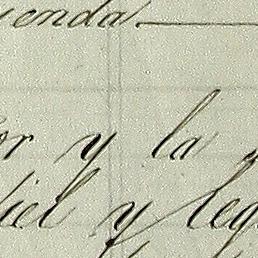 enda
or y la
iel y leg